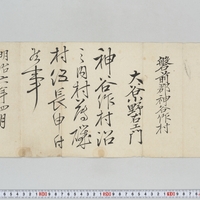 磐前郡神谷作村
大谷小野右ヱ門
神谷作村沼
之内村為聯
村伍長申付
候事
明治六年四月